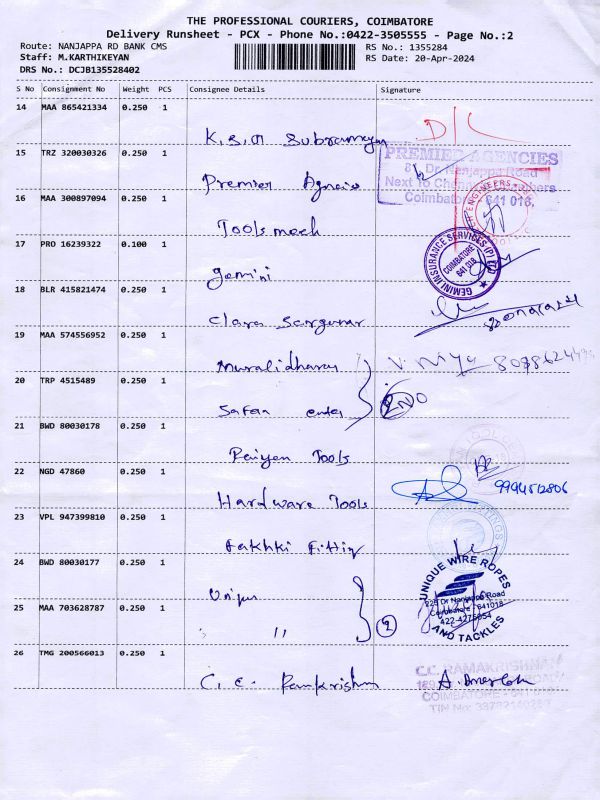 THE PROFESSIONAL COURIERS, COIMBATORE
Delivery Runsheet - PCX - Phone No.:0422-3505555 - Page No.:2
Route: NANJAPPA RD BANK CMS
RS No.: 1355284
Staff: M.KARTHIKEYAN
RS Date: 20-Apr-2024
DRS No.: DCJB135528402
S No Consignment No Weight PCS Consignee Details Signature
14 MAA 865421334 0.250 1
D/C
15 TRZ 320030326 0.250 1
PREMIER AGENCIES
Dr. Nanjappa Road
Next To
Coimbatore 641 018.
Premier
16 MAA 300897094 0.250 1
Tools mech
17 PRO 16239322 0.100 1
Gemini
GEMINI INSURANCE SERVICES (P) LTD
COIMBATORE
641 018
18 BLR 415821474 0.250 1
Clara
19 MAA 574556952 0.250 1
Muralidharan
20 TRP 4515489 0.250 1
21 BWD 80030178 0.250 1
Tools
22 NGD 47860 0.250 1
Hardware Tools
9994512806
23 VPL 947399810 0.250 1
24 BWD 80030177 0.250 1
UNIQUE WIRE ROPES
AND TACKLES
Dr Nanjappa Road
Coimbatore 641018
25 MAA 703628787 0.250 1
"
2
26 TMG 200566013 0.250 1
C.C. RAMAKRISHNA
COIMBATORE - 641 018
C. C. Ramkrishna